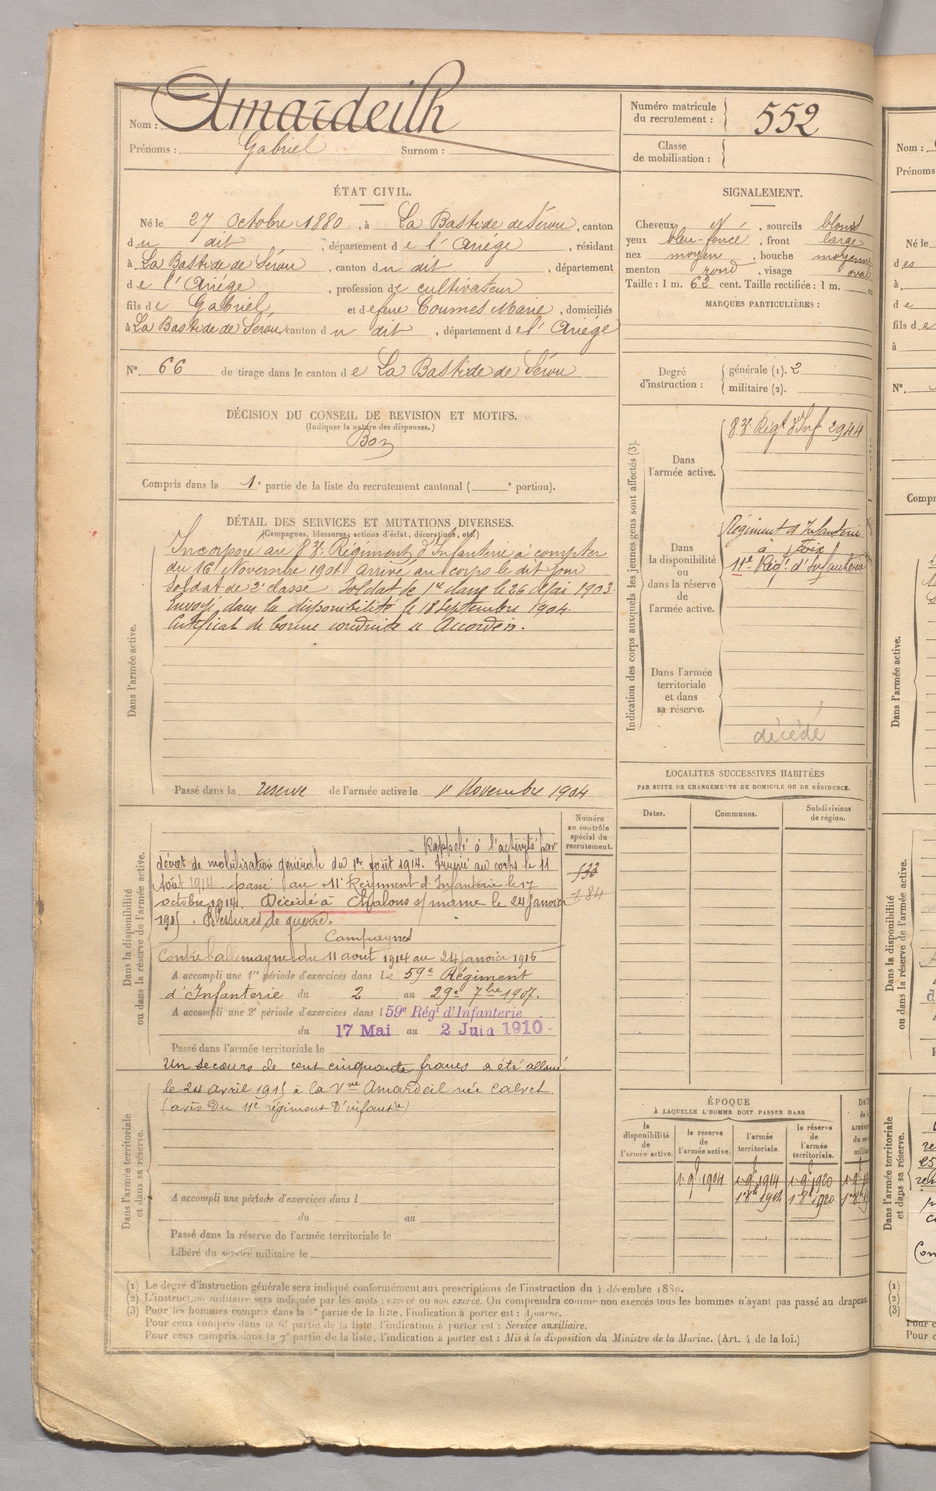 Nom : Amardeilh
Prénoms : Gabriel Surnom :
Numéro matricule du recrutement : 552
Classe de mobilisation :
ÉTAT CIVIL.
Né le 27 Octobre 1880, à La Bastide de Sérou, canton
du dit, département de l'Ariège, résidant
à La Bastide de Sérou, canton du dit, département
de l'Ariège, profession de cultivateur
fils de Gabriel et de feue Coumes Marie, domiciliés
à La Bastide de Sérou, canton du dit, département de l'Ariège
N° 66 de tirage dans le canton de La Bastide de Sérou
SIGNALEMENT.
Cheveux id, sourcils blond
yeux bleu foncé, front large
nez moyen, bouche moyenne
menton rond, visage oval
Taille : 1 m. 62 cent. Taille rectifiée : 1 m.
MARQUES PARTICULIÈRES :
Degré d'instruction : générale (1). 2
militaire (2).
DÉCISION DU CONSEIL DE REVISION ET MOTIFS.
(Indiquer la nature des dispenses.)
Bon
Compris dans la 1e partie de la liste du recrutement cantonal ( e portion).
DÉTAIL DES SERVICES ET MUTATIONS DIVERSES.
(Campagnes, blessures, actions d'éclat, décorations, etc.)
Dans l'armée active.
Incorporé au 83e Régiment d'Infanterie à compter
du 16 Novembre 1901 Arrivé au corps le dit jour
Soldat de 2e classe. Soldat de 1re classe le 26 Mai 1903.
Envoyé dans la disponibilité le 18 Septembre 1904.
Certificat de bonne conduite "Accordé".
Passé dans la réserve de l'armée active le 1er Novembre 1904
Indication des corps auxquels les jeunes gens sont affectés (3).
Dans l'armée active.
83e Régt d'Inf 2944
Dans la disponibilité ou dans la réserve de l'armée active.
Régiment d'Infanterie
à Foix
11e Régt d'Infanterie
Dans l'armée territoriale et dans sa réserve.
décédé
LOCALITES SUCCESSIVES HABITÉES
PAR SUITE DE CHANGEMENTS DE DOMICILE OU DE RÉSIDENCE.
Dates. Communes. Subdivisions de région.
Dans la disponibilité ou dans la réserve de l'armée active.
Numéro au contrôle spécial du recrutement.
Rappelé à l'activité par
décret de mobilisation générale du 1er août 1914. Arrivé au corps le 11
Août 1914. passé au 11e Régiment d'Infanterie le 17
octobre 1914. Décédé à Chalons s/marne le 24 Janvier
1915. Blessures de guerre.
Campagnes
Contre l'allemagne du 11 août 1914 au 24 Janvier 1915
A accompli une 1re période d'exercices dans le 59e Régiment
d'Infanterie du 2 au 29 7bre 1907.
A accompli une 2e période d'exercices dans l 59e Régt d'Infanterie
du 17 Mai au 2 Juin 1910.
Passé dans l'armée territoriale le
Un secours de cent cinquante francs a été alloué
le 24 avril 1915 à la Vve Amardeil née Calvet
(avis du 11e régiment d'infanterie)
Dans l'armée territoriale et dans sa réserve.
A accompli une période d'exercices dans l
du au
Passé dans la réserve de l'armée territoriale le
Libéré du service militaire le
ÉPOQUE
À LAQUELLE L'HOMME DOIT PASSER DANS
la disponibilité de l'armée active. la réserve de l'armée active. l'armée territoriale. la réserve de l'armée territoriale.
(1) Le degré d'instruction générale sera indiqué conformément aux prescriptions de l'instruction du 4 décembre 1889.
(2) L'instruction militaire sera indiquée par les mots : exercé ou non exercé. On comprendra comme non exercés tous les hommes n'ayant pas passé au drapeau
(3) Pour les hommes compris dans la 5e partie de la liste, l'indication à porter est : Ajourné.
Pour ceux compris dans la 6e partie de la liste, l'indication à porter est : Service auxiliaire.
Pour ceux compris dans la 7e partie de la liste, l'indication à porter est : Mis à la disposition du Ministre de la Marine. (Art. 4 de la loi.)